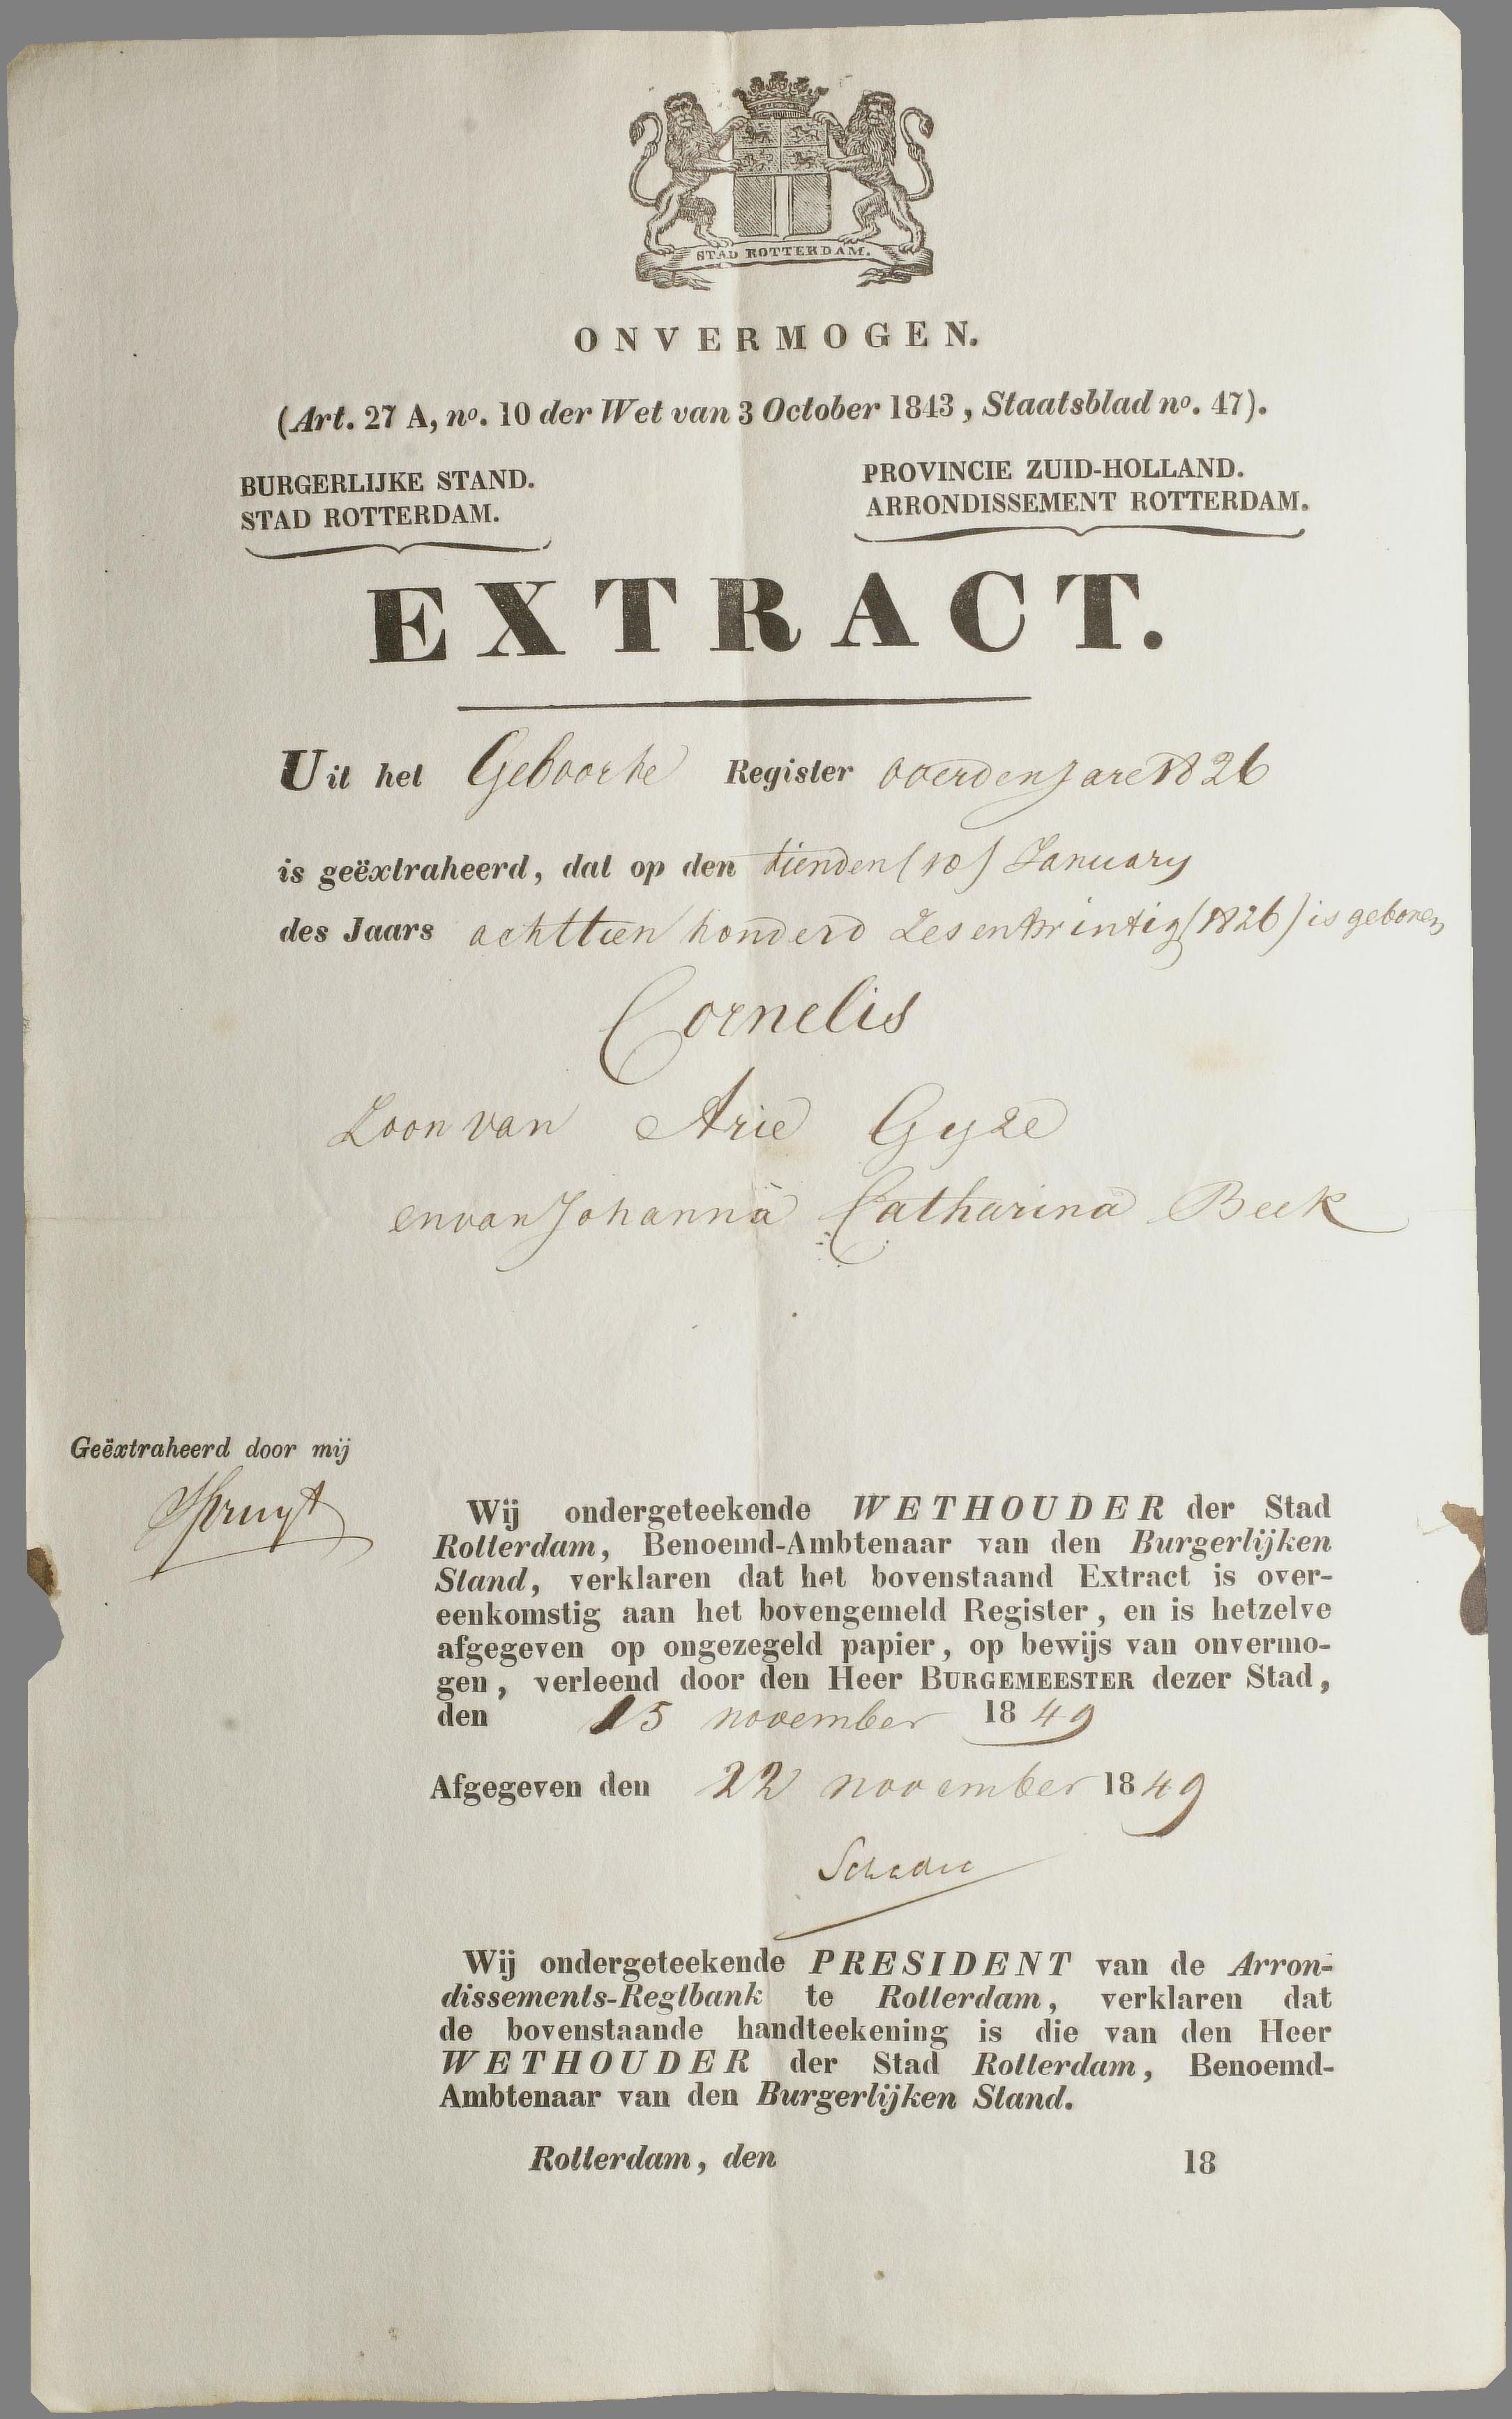 STAD ROTTERDAM.
ONVERMOGEN.
(Art. 27 A, no. 10 der Wet van 3 October 1843, Staatsblad no. 47).
BURGERLIJKE STAND.
STAD ROTTERDAM.
PROVINCIE ZUID-HOLLAND.
ARRONDISSEMENT ROTTERDAM.
EXTRACT.
Uit het Geboorte Register voor den Jare 1826
is geëxtraheerd, dat op den tienden (10) January
des Jaars achttien honderd Zes en twintig (1826) is geboren
Cornelis
Zoon van Arie Gyze
en van Johanna Catharina Beek
Geëxtraheerd door mij
Spruyt
Wij ondergeteekende WETHOUDER der Stad
Rotterdam, Benoemd-Ambtenaar van den Burgerlijken
Stand, verklaren dat het bovenstaand Extract is over-
eenkomstig aan het bovengemeld Register, en is hetzelve
afgegeven op ongezegeld papier, op bewijs van onvermo-
gen, verleend door den Heer BURGEMEESTER dezer Stad,
den 15 november 1849
Afgegeven den 22 november 1849
Wij ondergeteekende PRESIDENT van de Arron-
dissements-Regtbank te Rotterdam, verklaren dat
de bovenstaande handteekening is die van den Heer
WETHOUDER der Stad Rotterdam, Benoemd-
Ambtenaar van den Burgerlijken Stand.
Rotterdam, den 18